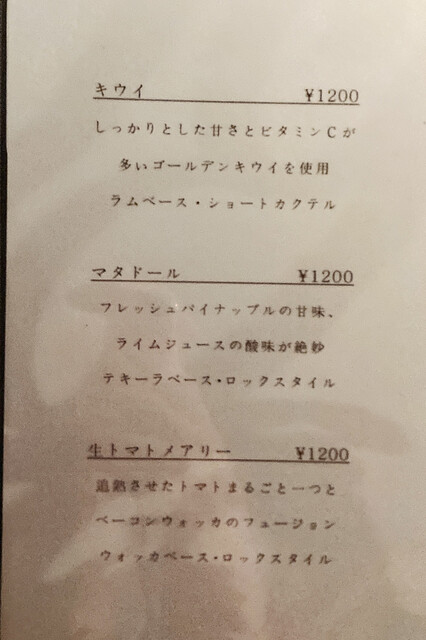 キウイ ¥1200
しっかりとした甘さとビタミンCが
多いゴールデンキウイを使用
ラムベース・ショートカクテル
マタドール ¥1200
フレッシュパイナップルの甘味、
ライムジュースの酸味が絶妙
テキーラベース・ロックスタイル
生トマトメアリー ¥1200
追熟させたトマトまるごと一つと
ベーコンウォッカのフュージョン
ウォッカベース・ロックスタイル